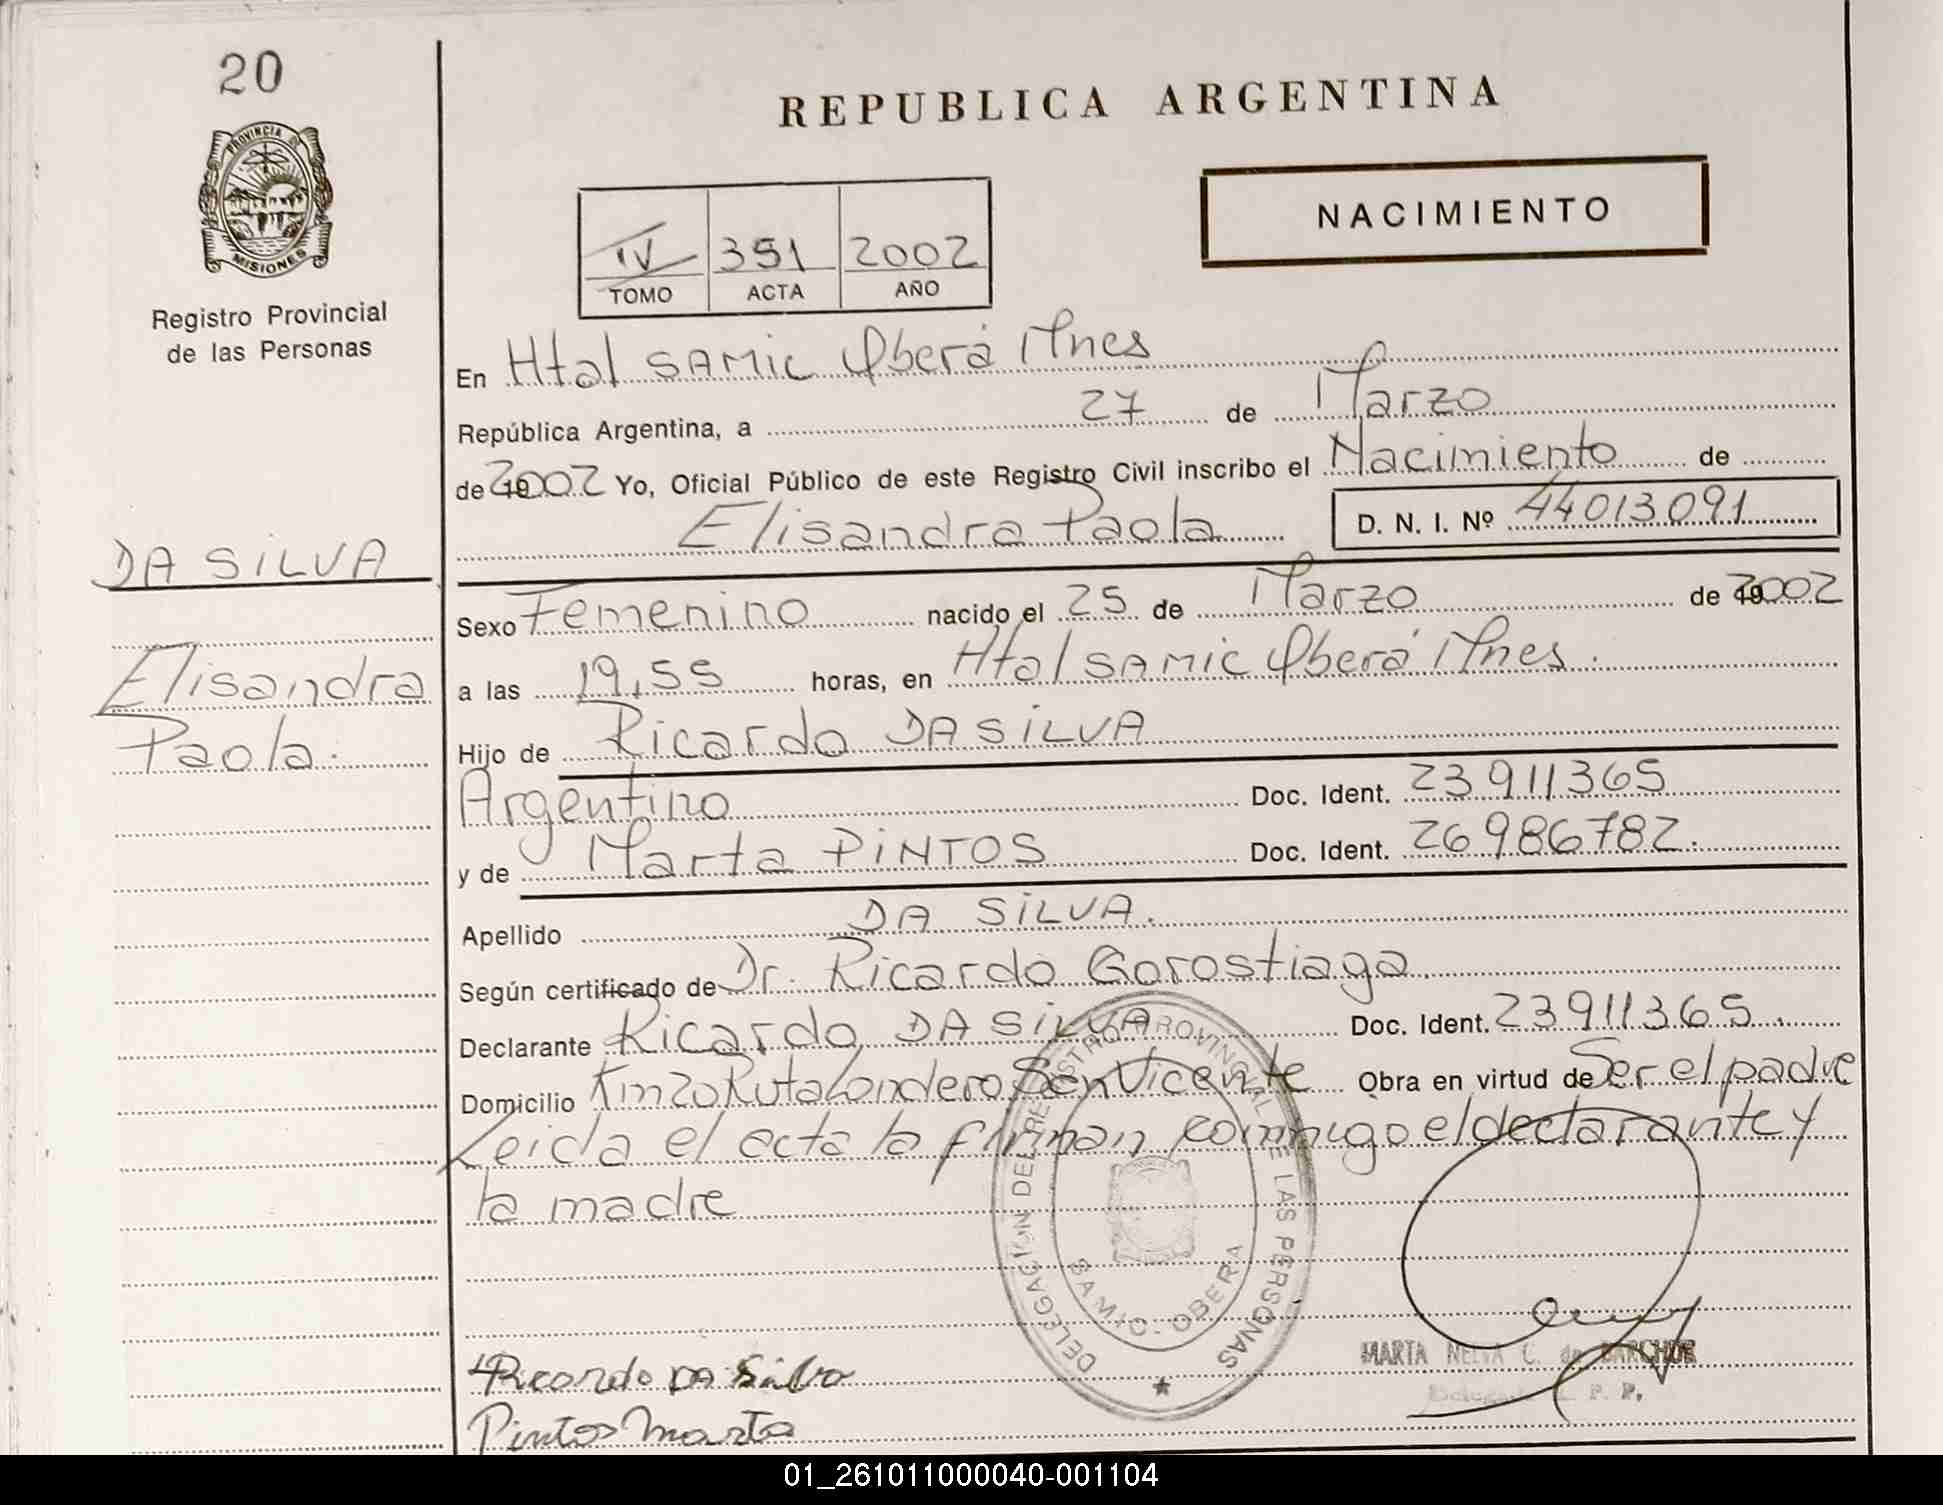 20
PROVINCIA DE
MISIONES
Registro Provincial
de las Personas
REPUBLICA ARGENTINA
NACIMIENTO
IV 351 2002
TOMO ACTA AÑO
En Htal SAMIC Oberá Mnes
República Argentina, a 27 de Marzo
de 2002 Yo, Oficial Público de este Registro Civil inscribo el Nacimiento de
Elisandra Paola D. N. I. Nº 44013091
DA SILVA
Elisandra
Paola.
Sexo Femenino nacido el 25 de Marzo de 2002
a las 19,55 horas, en Htal SAMIC Oberá Mnes.
Hijo de Ricardo DA SILVA
Argentino Doc. Ident. 23911365
y de Marta PINTOS Doc. Ident. 26986782.
Apellido DA SILVA.
Según certificado de Dr. Ricardo Gorostiaga
Declarante Ricardo DA SILVA Doc. Ident. 23911365.
Domicilio Ruta Londero San Vicente Obra en virtud de Ser el padre
Leida el acta la firman conmigo el declarante y
la madre
DELEGACION DEL REGISTRO PROVINCIAL DE LAS PERSONAS
SAMIC - OBERA
Ricardo DA Silva
Pintos Marta
MARTA NELVA C. de
R. P. P.
01_261011000040-001104